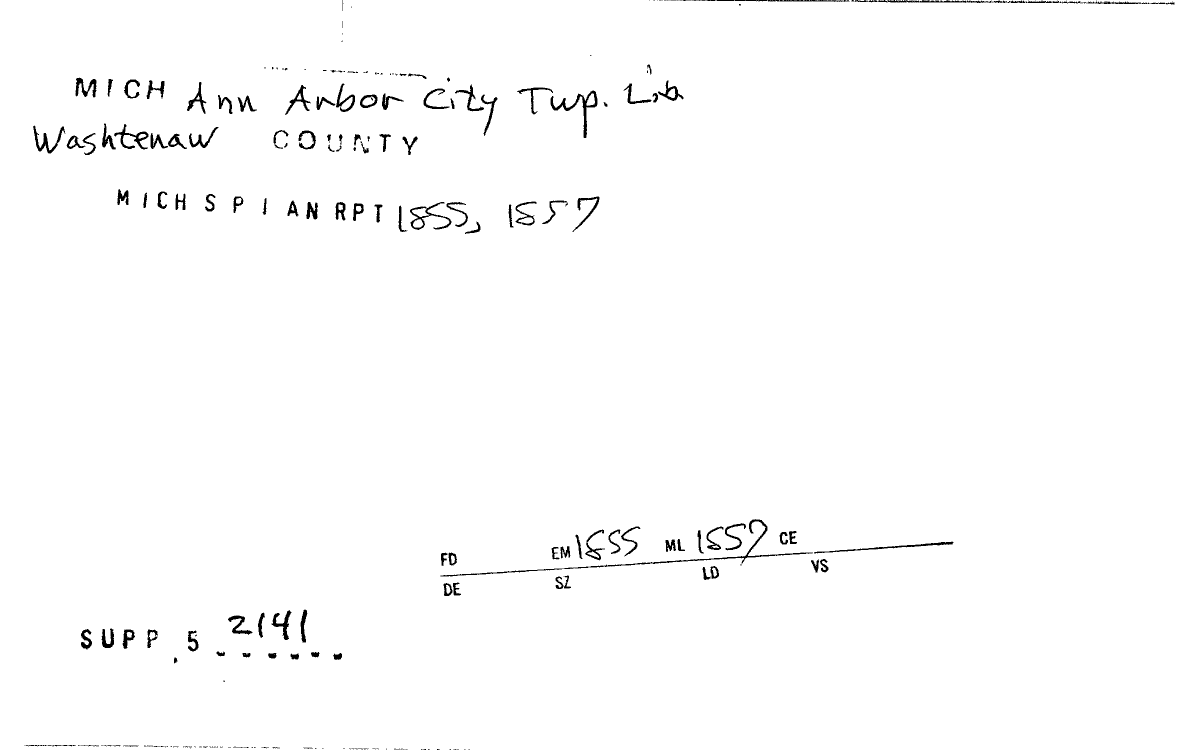 MICH Ann Arbor City Twp. Lib
Washtenaw COUNTY
MICH S P I AN RPT 1855, 1857
FD EM 1855 ML 1857 CE
DE SZ LD VS
SUPP. 5 2141